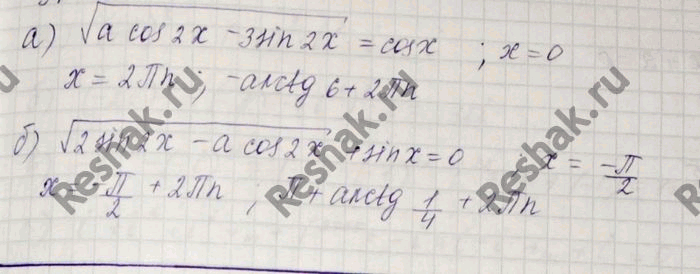 а) √(a cos2x - 3sin2x) = cosx ; x=0
x = 2πn ; -arctg 6 + 2πn
б) √(2 sin2x - a cos2x) + sinx = 0 ; x = -π/2
x = -π/2 + 2πn ; π + arctg 1/4 + 2πn
Reshak.ru
Reshak.ru
Reshak.ru